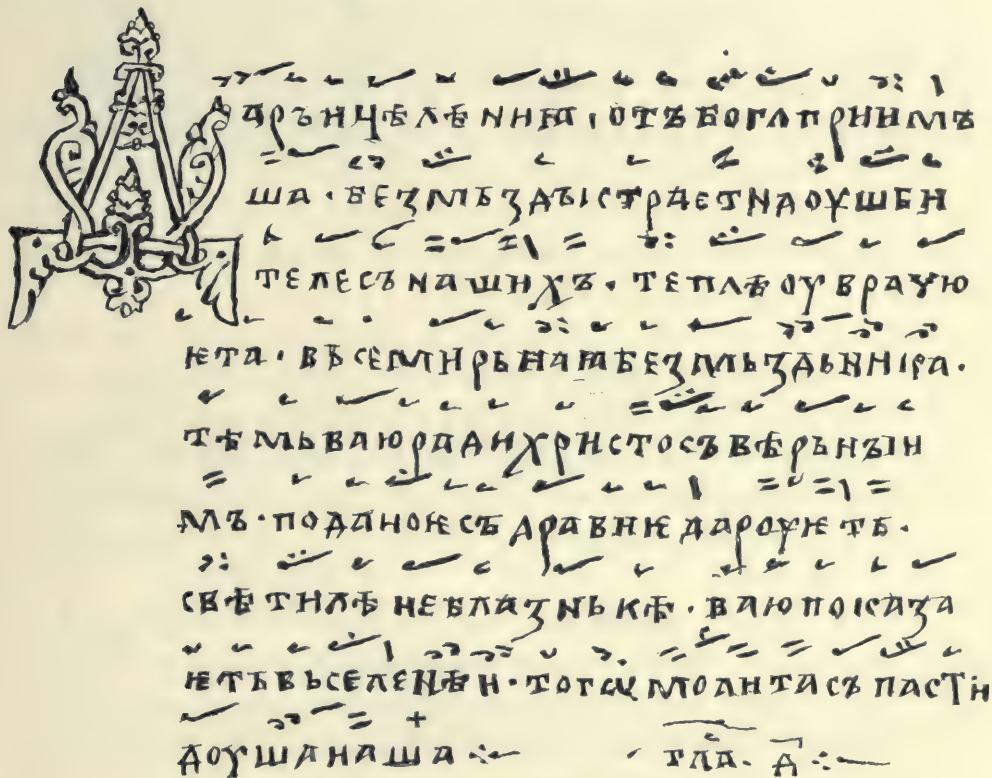 Даръ ицѣлениꙗ · отъ бога приимъ
ша · безмъздꙑ страст на оушьи
телесъ нашихъ · теплѣ оуврачю
ѥта · вьсемирьнаꙗ безмьздьникꙗ ·
тѣмь ваю ради христосъ вѣрьнꙑи
мъ · поданоѥ съдравиѥ дароуѥть ·
свѣтилѣ неблазньнѣ · ваю показа
ѥть вьселенѣи · того молита съпасти
доуша наша ⁘
гла · д ⁘